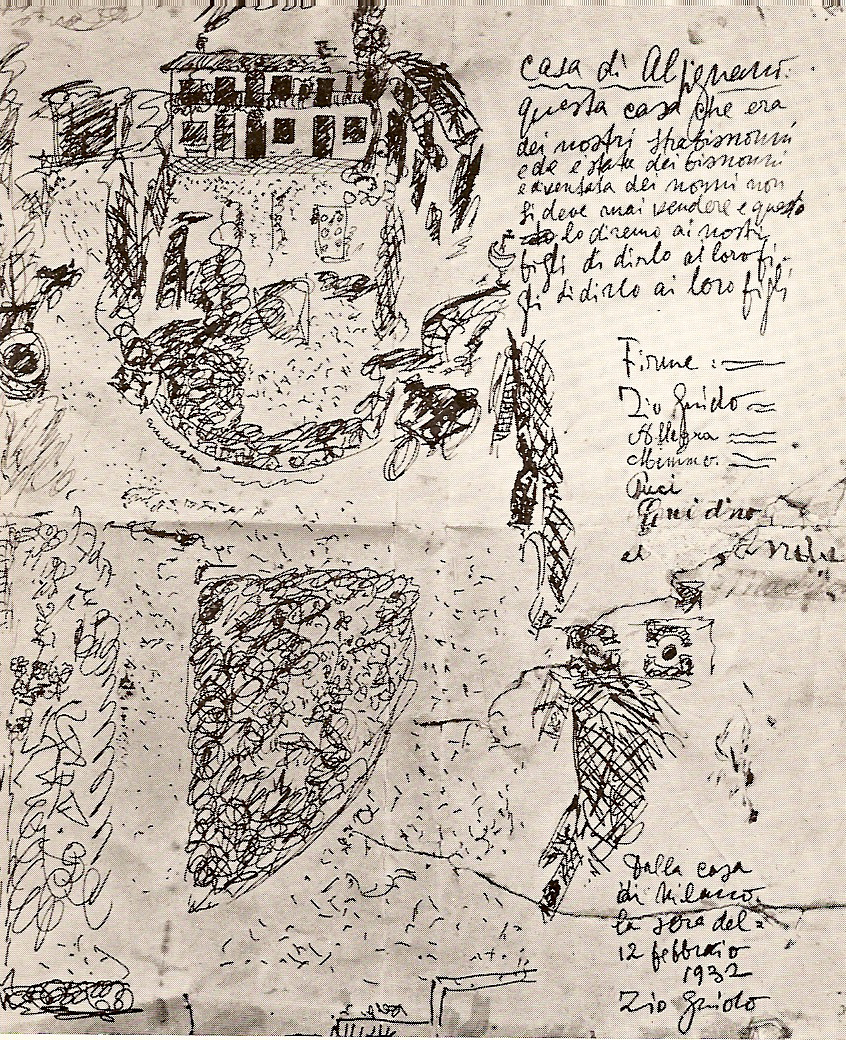 casa di Alpignano.
questa casa che era
dei nostri strabisnonni
e da e stata dei bisnonni
e diventata dei nonni non
si deve mai vendere e questo
lo diremo ai nostri
figli di dirlo ai loro fi-
gli di dirlo ai loro figli
Firme :
Zio Guido
Allegra
Mimmo
Puci
Guidino
Dalla casa
di Milano.
la sera del
12 febbraio
1932
Zio Guido